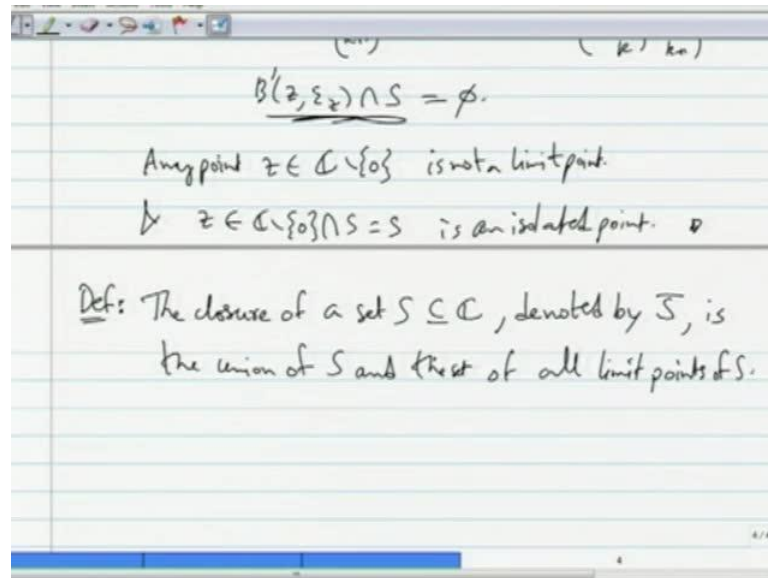 B'(z, ε_z) ∩ S = ϕ.
Any point z ∈ ℂ \ {0} is not a limit point.
z ∈ ℂ \ {0} ∩ S = S is an isolated point.
Def: The closure of a set S ⊆ ℂ, denoted by S̄, is
the union of S and the set of all limit points of S.